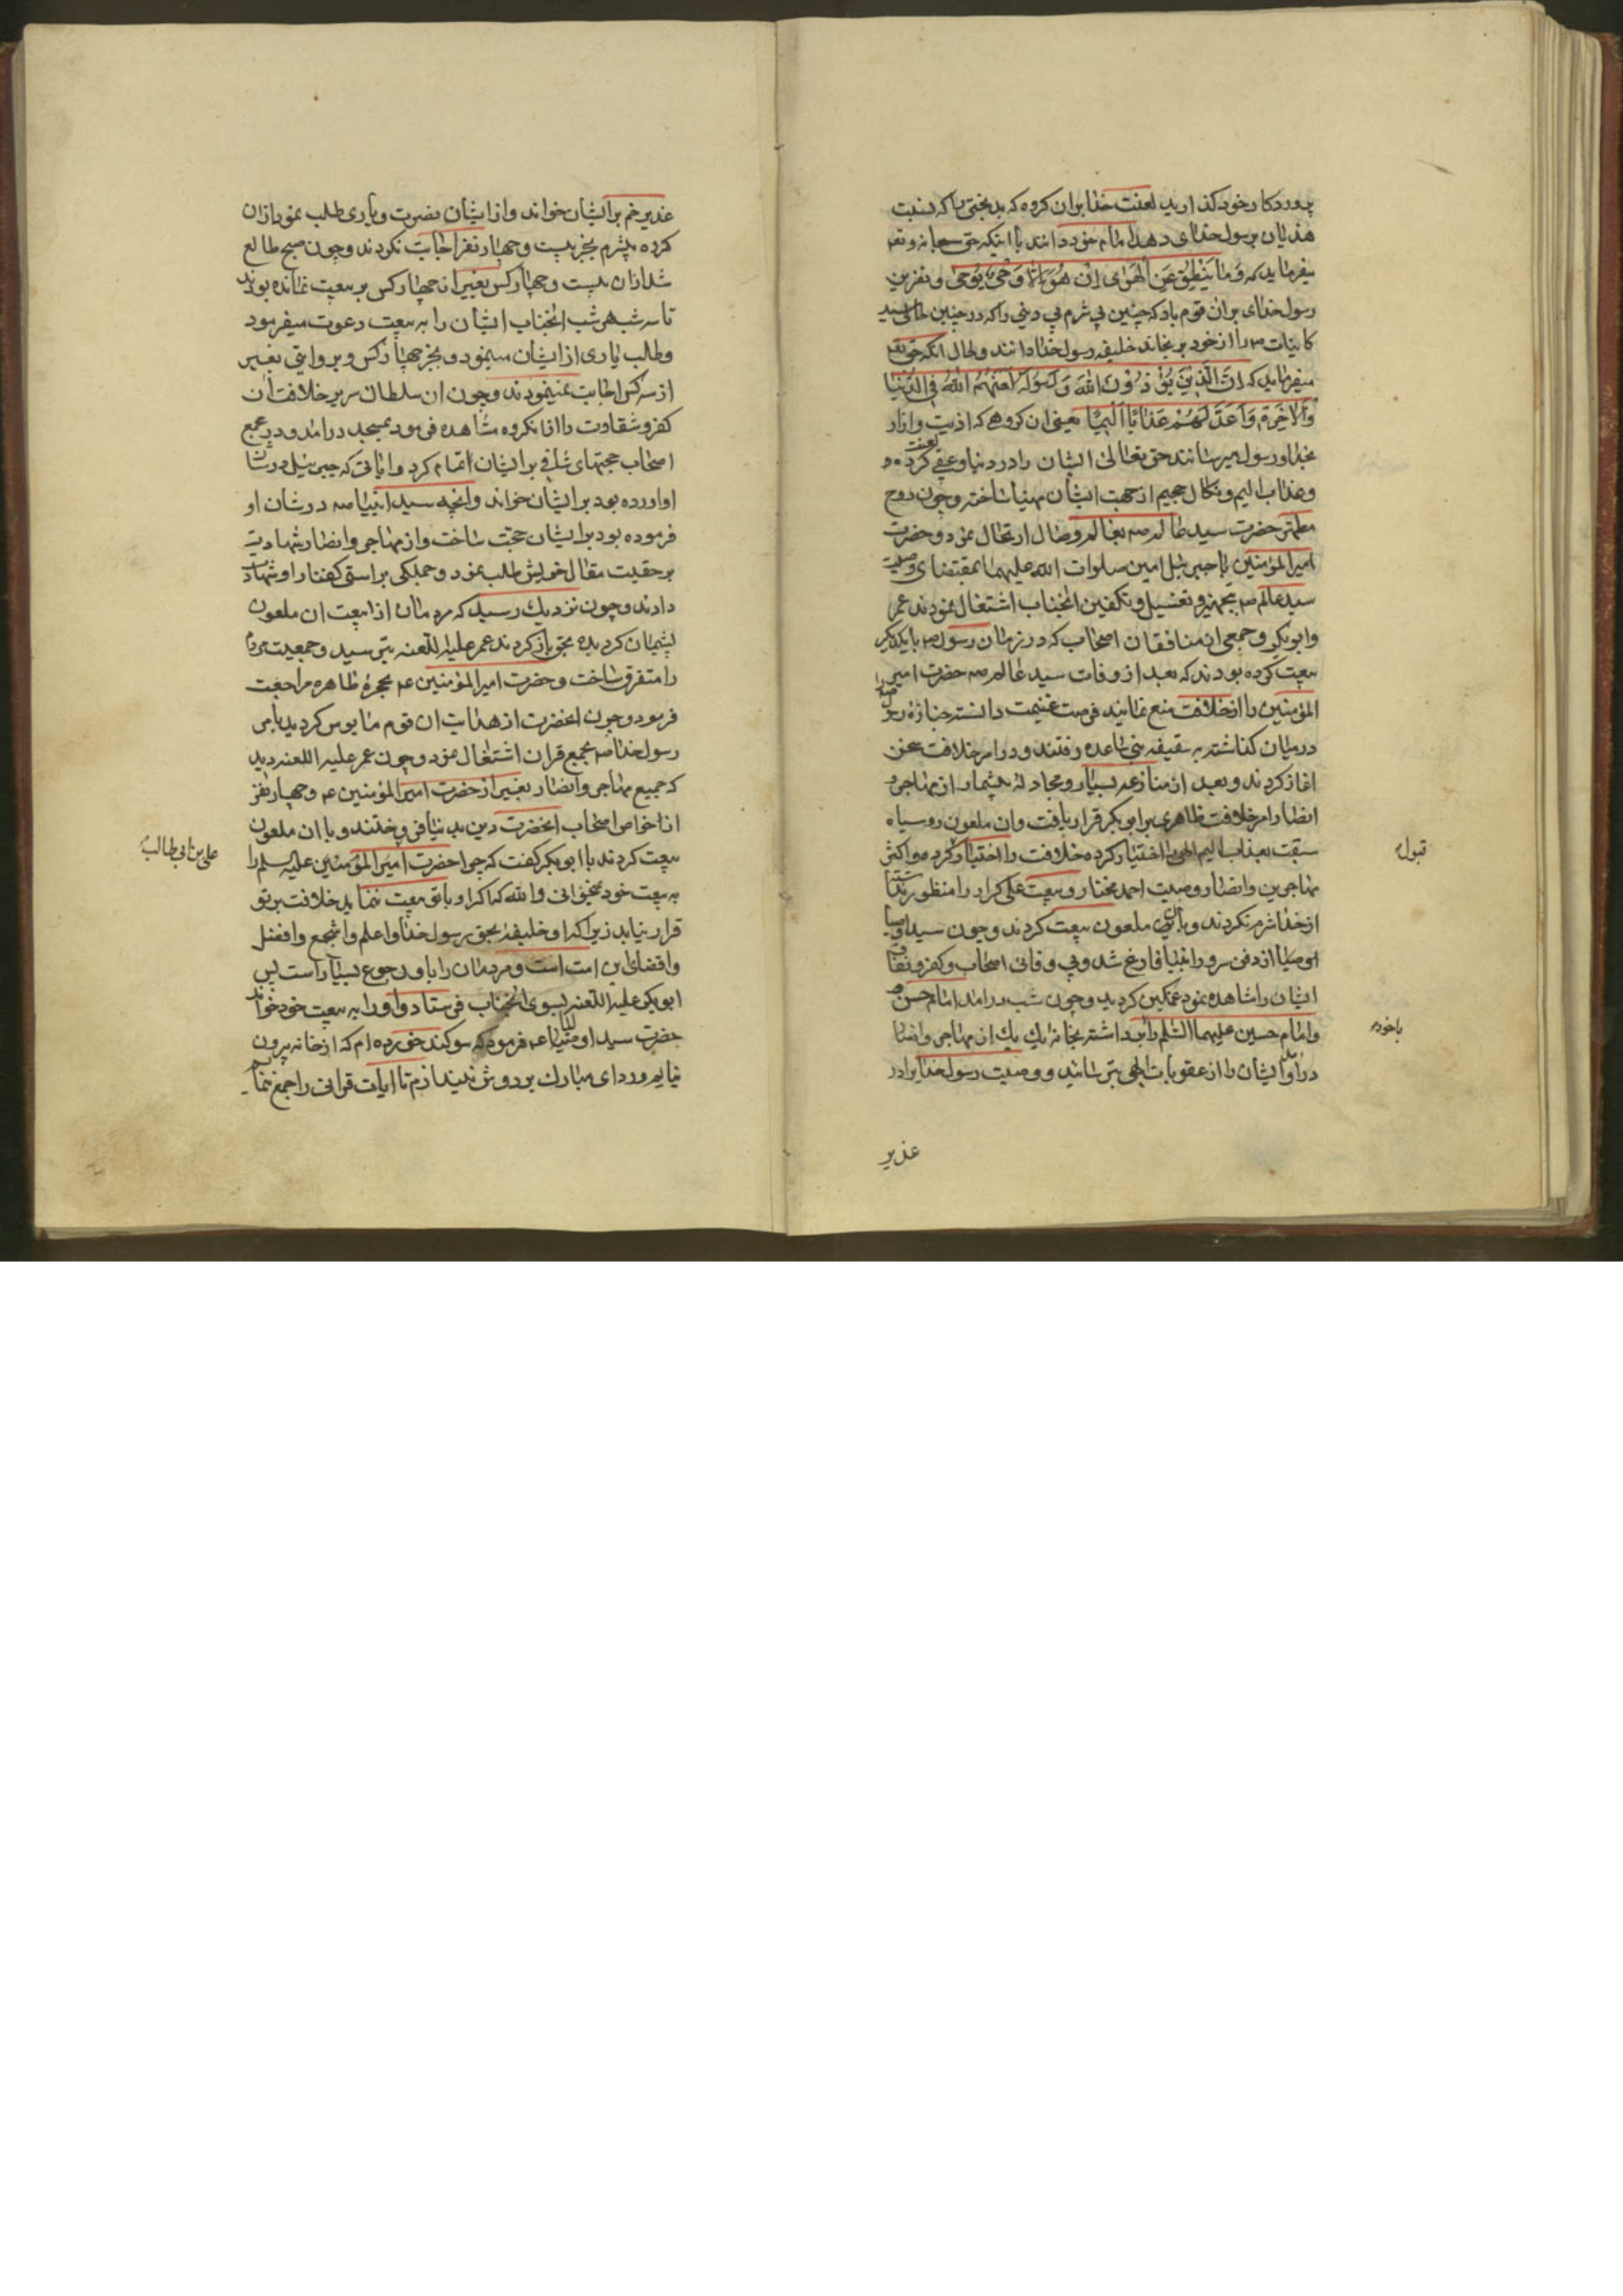 پروردکار خود کذارید لعنت خدا بران کروه که بدبختی را که نسبت
هذیان برسول خدای دهد امام خود دانند با اینکه حق سبحانه وتعـ
میفرماید که وَمَا یَنْطِقُ عَنِ الْهَوٰی اِنْ هُوَ اِلَّا وَحْیٌ یُوحٰی و نفرین
رسول خدای بران قوم باد که چنین بی شرم بی دینی را که در چنین حالی سید
کاینات ص را از خود برنجاند خلیفه رسول خدا دانند و حال آنکه حق تعـ
میفرماید که اِنَّ الَّذِینَ یُؤْذُونَ اللهَ وَرَسُولَهُ لَعَنَهُمُ اللهُ فِی الدُّنْیَا
وَالْاٰخِرَةِ وَاَعَدَّ لَهُمْ عَذَابًا اَلِیمًا یعنی ان کروهی که اذیت وازار
بخدا و رسول میرسانند حق تعالی ایشان را در دنیا و عقبی لعنت کرده
و عذاب الیم و نکال جحیم از جهت ایشان مهیا ساخته و چون روح
مطهر حضرت سید عالم ص بعالم وصال ارتحال نمود و حضرت
امیرالمؤمنین با جبرئیل امین صلوات الله علیهما بمقتضای وصیت
سید عالم ص بتجهیز و تغسیل و تکفین انجناب اشتغال نمودند عمر
وابوبکر و جمعی از منافقان اصحاب که در زمان رسول ص با یکدیکر
بیعت کرده بودند که بعد از وفات سید عالم ص حضرت امیر
المؤمنین را از خلافت منع نمایند فرصت غنیمت دانسته جنازه رسول خدا را
در میان کذاشته به سقیفه بنی ساعده رفتند و در امر خلافت سخن
اغاز کردند و بعد از منازعه بسیار و مجادله بیشمار از مهاجر و
انصار امر خلافت ظاهری برابوبکر قرار یافت وان ملعون روسیاه
سبقت بعذاب الیم الهی اختیار کرده خلافت را اختیار کرد و اکثر
مهاجرین وانصار وصیت احمد مختار و بیعت علی کرار را منظور نداشتند
از خدا شرم نکردند و با آن ملعون بیعت کردند و چون سید اوصیا
از دفن سرور انبیا فارغ شد و بی وفائی اصحاب و کفر و نفاق
ایشان را مشاهده نمود غمکین کردید و چون شب درامد امام حسن
و امام حسین علیهما السلم را برداشته بخانه یک یک از مهاجر وانصار
درامد و ایشان را از عقوبات الهی بترسانید و وصیت رسول خدا را در
قبول
باخود
غدیر
غدیر خم بر ایشان خواند و از ایشان نصرت و یاری طلب نمود ازان
کروه بیشرم بجز بیست و چهار نفر اجابت نکردند و چون صبح طالع
شد ازان بیست و چهار کس بغیر از چهار کس بر بیعت نمانده بودند
تا سه شب هر شب انجناب ایشان را به بیعت دعوت میفرمود
وطلب یاری از ایشان مینمود و بجز چهار کس و بروایتی بغیر
از سه کس اجابت نمینمودند و چون ان سلطان سریر خلافت ان
کفر و شقاوت را ازان کروه مشاهده فرمود بمسجد درامد و در مجمع
اصحاب حجتهای شافی بر ایشان اتمام کرد و ایاتی که جبرئیل در شان
او اورده بود بر ایشان خواند و انچه سید انبیا ص در شان او
فرموده بود بر ایشان حجت ساخت و از مهاجر و انصار شهادت
بر حقیت مقال خویش طلب نمود و جملکی براستی کفتار او شهادت
دادند و چون نزدیک رسید که مردمان از بیعت ان ملعون
پشیمان کردیده بحق باز کردند عمر علیه اللعنه بترسید و جمعیت مردم
را متفرق ساخت و حضرت امیرالمؤمنین ع بحجره طاهره مراجعت
فرمود و چون انحضرت از هدایت ان قوم مایوس کردید بامر
رسول خدا ص بجمع قران اشتغال نمود و چون عمر علیه اللعنه دید
که جمیع مهاجر و انصار بغیر از حضرت امیرالمؤمنین ع و چهار نفر
از خواص اصحاب انحضرت دین بدنیا فروختند و با ان ملعون
بیعت کردند با ابوبکر کفت که چرا حضرت امیرالمؤمنین علیه السلم را
به بیعت خود نمیخوانی والله که اکر او با تو بیعت ننماید خلافت بر تو
قرار نیابد زیرا که او خلیفه بحق رسول خدا و اعلم و اشجع وافضل
واقضای این امت است و مردمان را باو رجوع بسیار است پس
ابوبکر علیه اللعنه بسوی انجناب فرستاد و او را به بیعت خود خواند
حضرت سید اوصیا ع فرمود که سوکند خورده ام که از خانه بیرون
نیایم و ردای مبارک بر دوش نیندازم تا ایات قرانی را جمع نمایم
علی بن ابی طالب